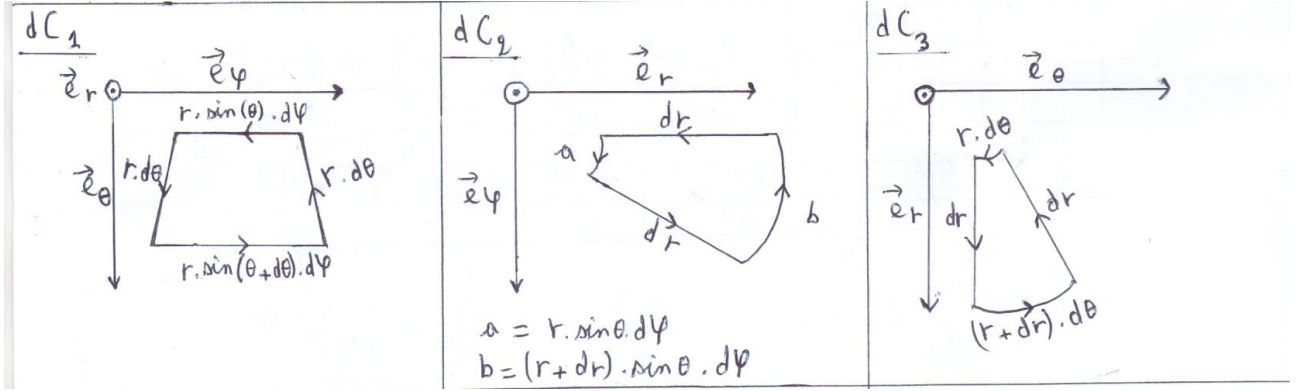 dC₁
e⃗r
e⃗φ
r.sin(θ).dφ
r.dθ
r.dθ
e⃗θ
r.sin(θ+dθ).dφ
dC₂
e⃗r
dr
a
e⃗φ
dr
b
a = r.sinθ.dφ
b = (r+dr).sinθ.dφ
dC₃
e⃗θ
r.dθ
e⃗r
dr
dr
(r+dr).dθ